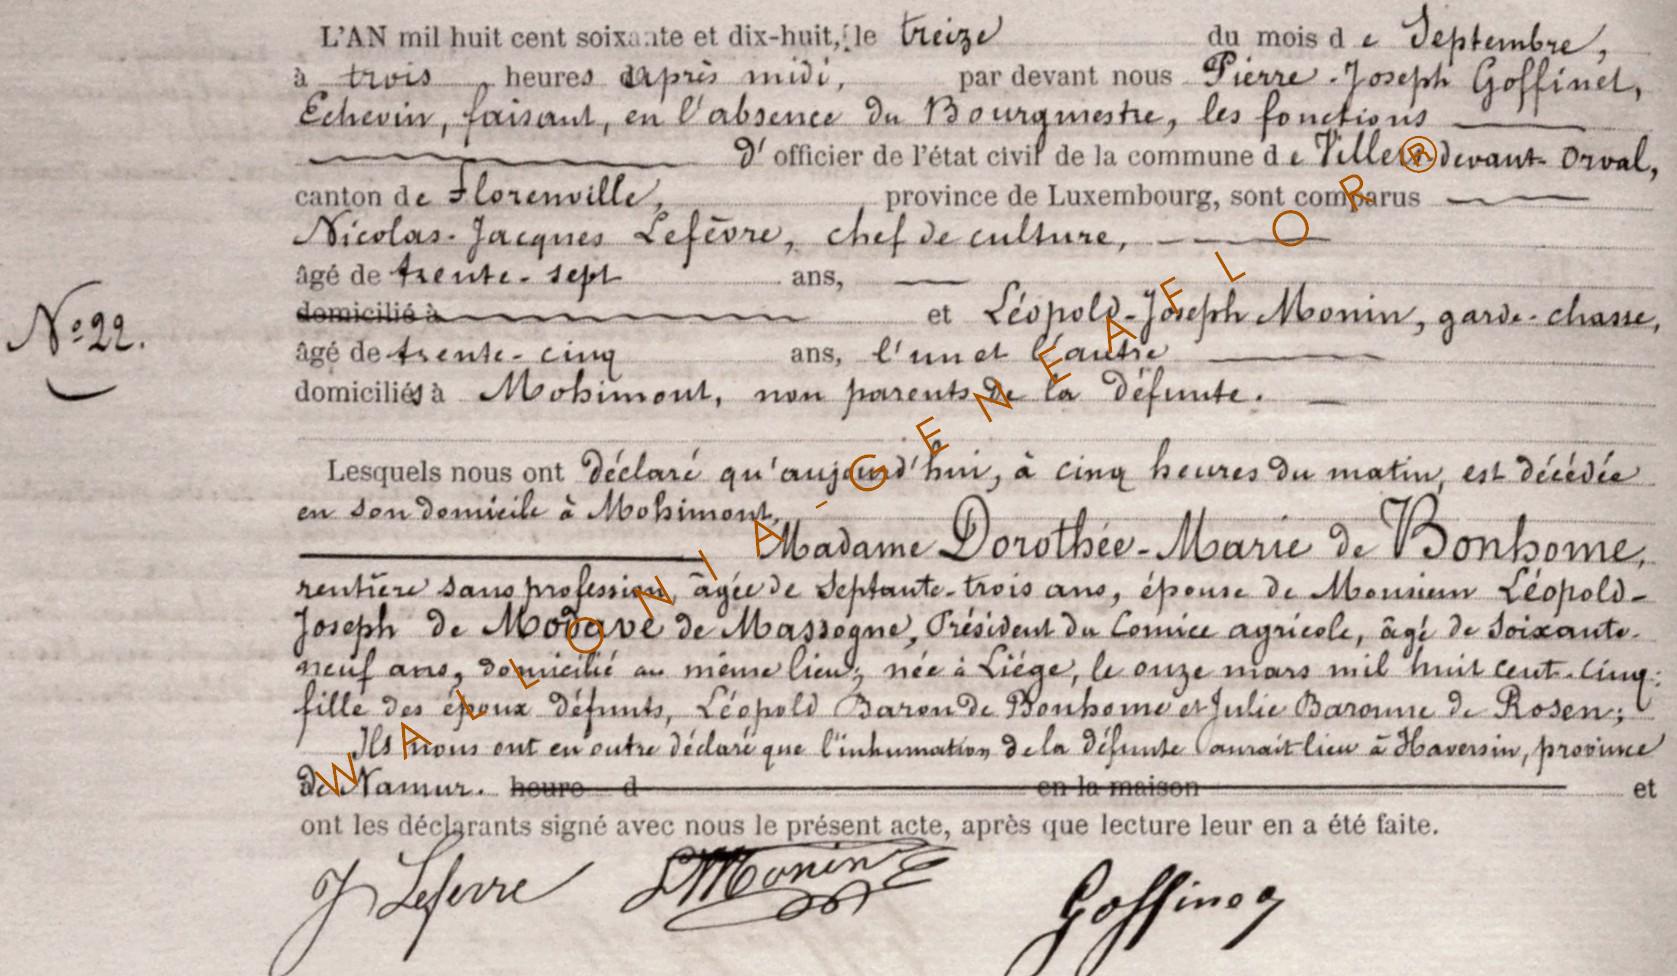 L'AN mil huit cent soixante et dix-huit, le treize du mois d e Septembre,
à trois heures après midi, par devant nous Pierre-Joseph Goffinet,
Echevin, faisant, en l'absence du Bourgmestre, les fonctions
d' officier de l'état civil de la commune d e Villers devant Orval,
canton de Florenville, province de Luxembourg, sont comparus
Nicolas-Jacques Lefèvre, chef de culture,
âgé de trente-sept ans,
domicilié à et Léopold-Joseph Monin, garde-chasse,
N° 22.
âgé de trente-cinq ans, l'un et l'autre
domiciliés à Mohimont, non parents de la défunte.
Lesquels nous ont déclaré qu'aujourd'hui, à cinq heures du matin, est décédée
en son domicile à Mohimont,
Madame Dorothée-Marie de Bonhome,
rentière sans profession, âgée de septante-trois ans, épouse de Monsieur Léopold-
Joseph de Modave de Massogne, Président du Comice agricole, âgé de soixante-
neuf ans, domicilié au même lieu; née à Liége, le onze mars mil huit cent-cinq:
fille des époux défunts, Léopold Baron de Bonhome et Julie Baronne de Rosen;
Ils nous ont en outre déclaré que l'inhumation de la défunte aurait lieu à Haversin, province
de Namur. heure d en la maison et
ont les déclarants signé avec nous le présent acte, après que lecture leur en a été faite.
J Lefevre LMonin Goffinet
WALLONIA-GENEAFLOR®